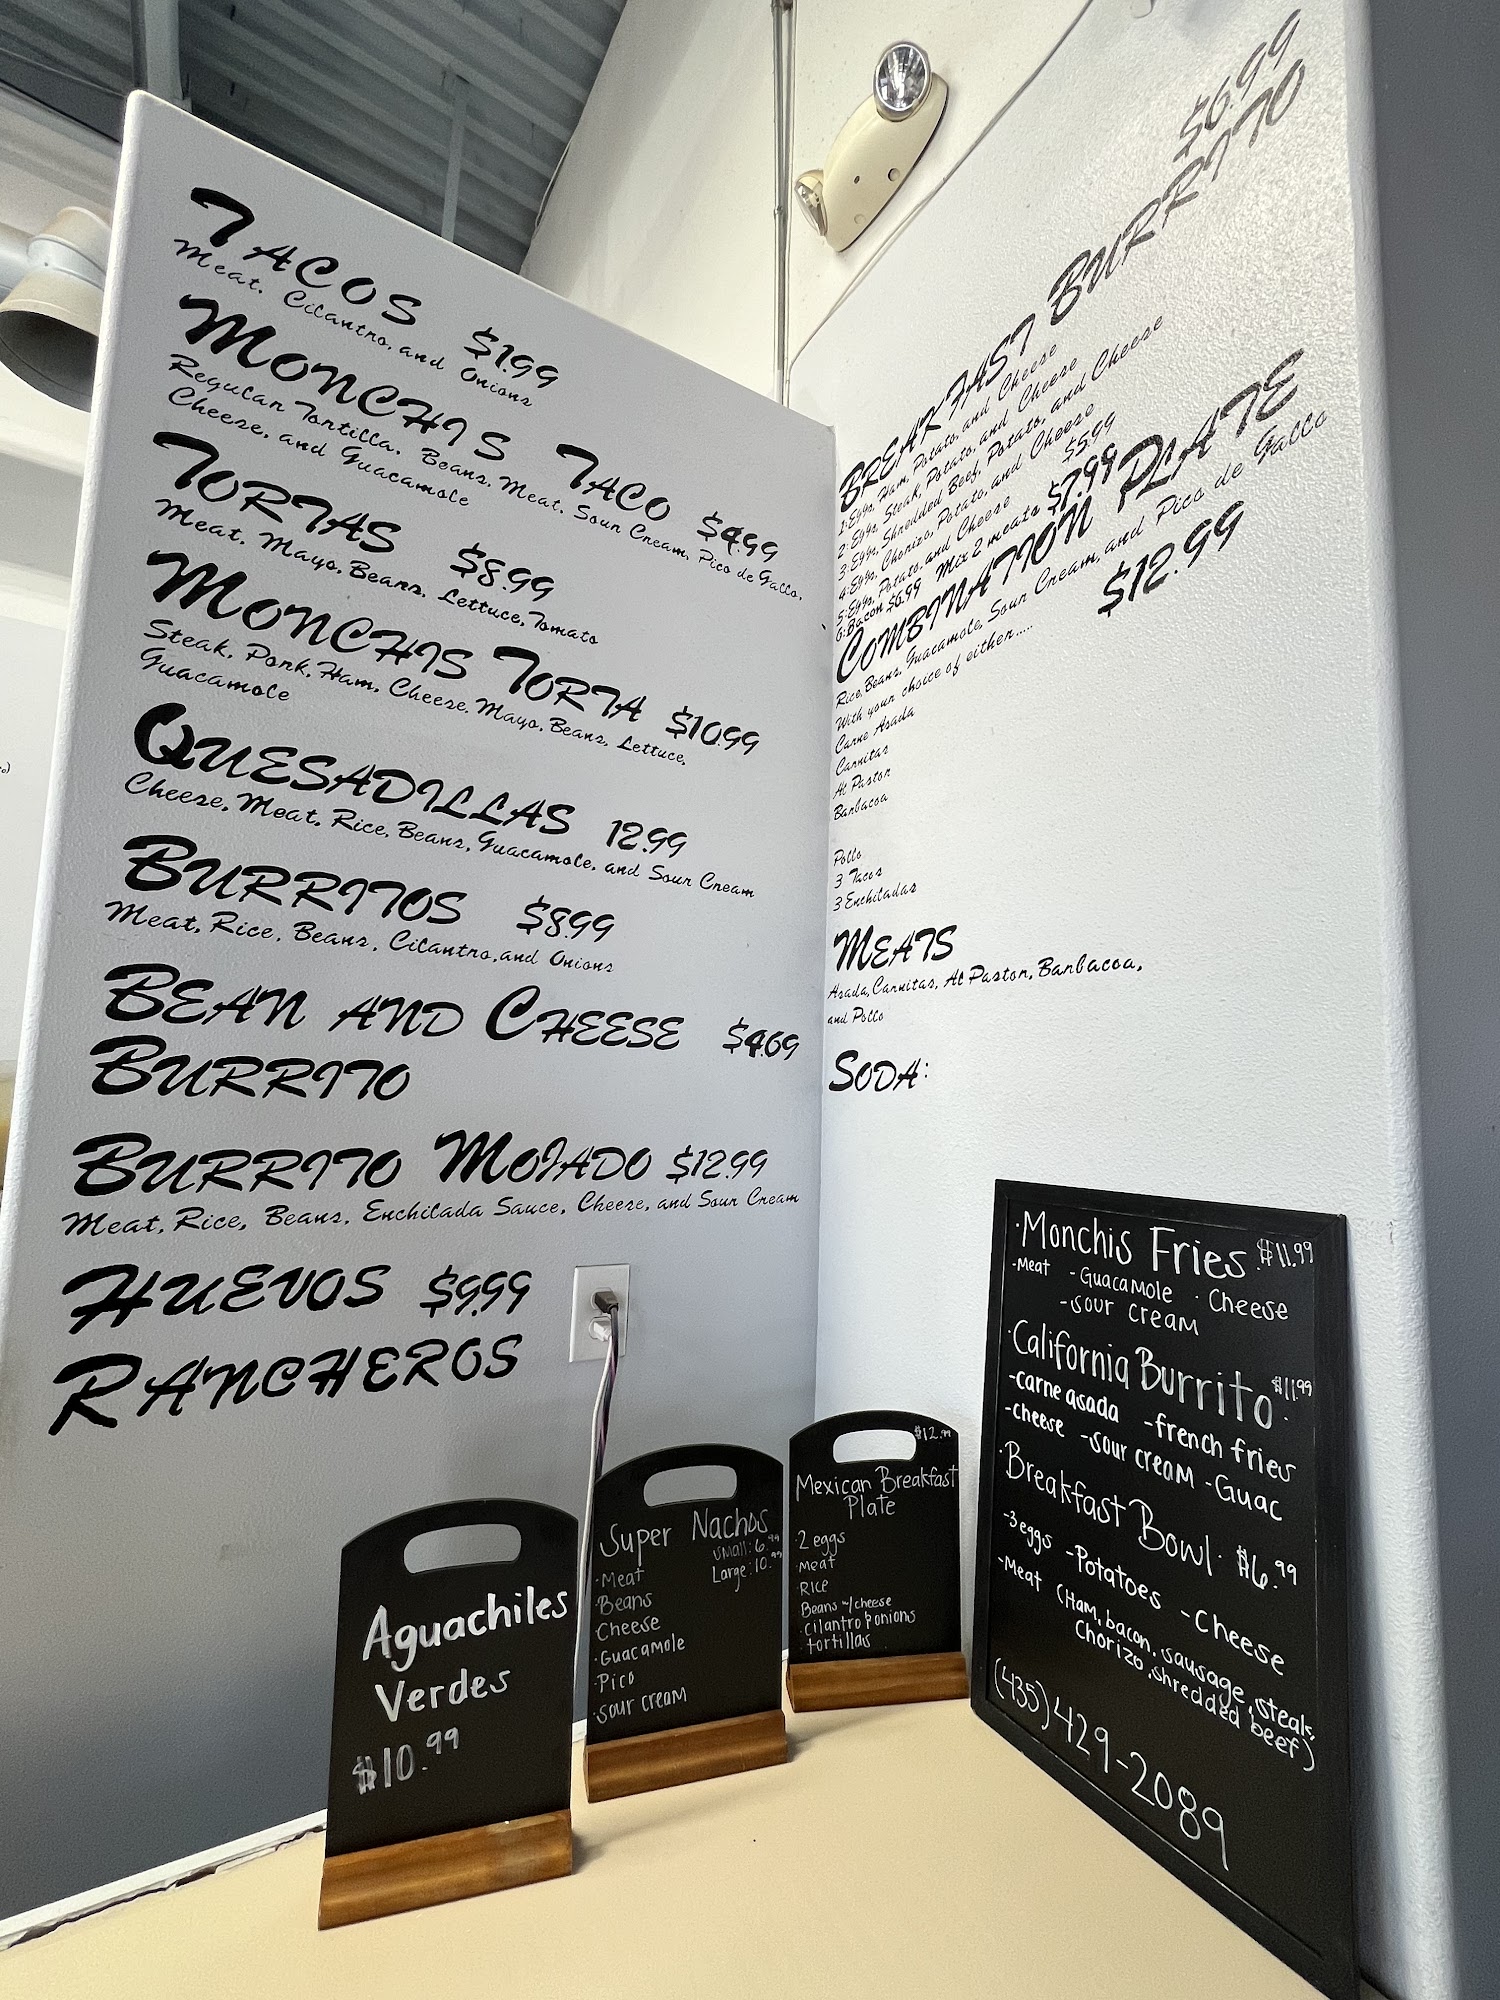 TACOS $1.99
Meat, Cilantro, and Onions
MONCHIS TACO $4.99
Regular Tortilla, Beans, Meat, Sour Cream, Pico de Gallo,
Cheese, and Guacamole
TORTAS $8.99
Meat, Mayo, Beans, Lettuce, Tomato
MONCHIS TORTA $10.99
Steak, Pork, Ham, Cheese, Mayo, Beans, Lettuce,
Guacamole
QUESADILLAS 12.99
Cheese, Meat, Rice, Beans, Guacamole, and Sour Cream
BURRITOS $8.99
Meat, Rice, Beans, Cilantro, and Onions
BEAN AND CHEESE $4.69
BURRITO
BURRITO MOJADO $12.99
Meat, Rice, Beans, Enchilada Sauce, Cheese, and Sour Cream
HUEVOS $9.99
RANCHEROS
$6.99
BREAKFAST BURRITO
1: Eggs, Ham, Potato, and Cheese
2: Eggs, Steak, Potato, and Cheese
3: Eggs, Shredded Beef, Potato, and Cheese
4: Eggs, Chorizo, Potato, and Cheese
5: Eggs, Potato, and Cheese $5.99
6: Bacon $6.99 Mix 2 meats $7.99
COMBINATION PLATE
Rice, Beans, Guacamole, Sour Cream, and Pico de Gallo
With your choice of either..... $12.99
Carne Asada
Carnitas
Al Pastor
Barbacoa
Pollo
3 Tacos
3 Enchiladas
MEATS
Asada, Carnitas, Al Pastor, Barbacoa,
and Pollo
SODA:
Aguachiles
Verdes
$10.99
Super Nachos
small: 6.99
Large: 10.99
·Meat
·Beans
Cheese
·Guacamole
·Pico
·sour cream
$12.99
Mexican Breakfast
Plate
·2 eggs
·meat
·Rice
Beans w/cheese
·cilantro & onions
·tortillas
·Monchis Fries $11.99
-Meat -Guacamole · Cheese
-sour cream
·California Burrito $11.99
-carne asada -french fries
-cheese -sour cream -Guac
·Breakfast Bowl· $6.99
-3 eggs -Potatoes -Cheese
-Meat (Ham, bacon, sausage, steak,
Chorizo, shredded beef)
(435) 429-2089